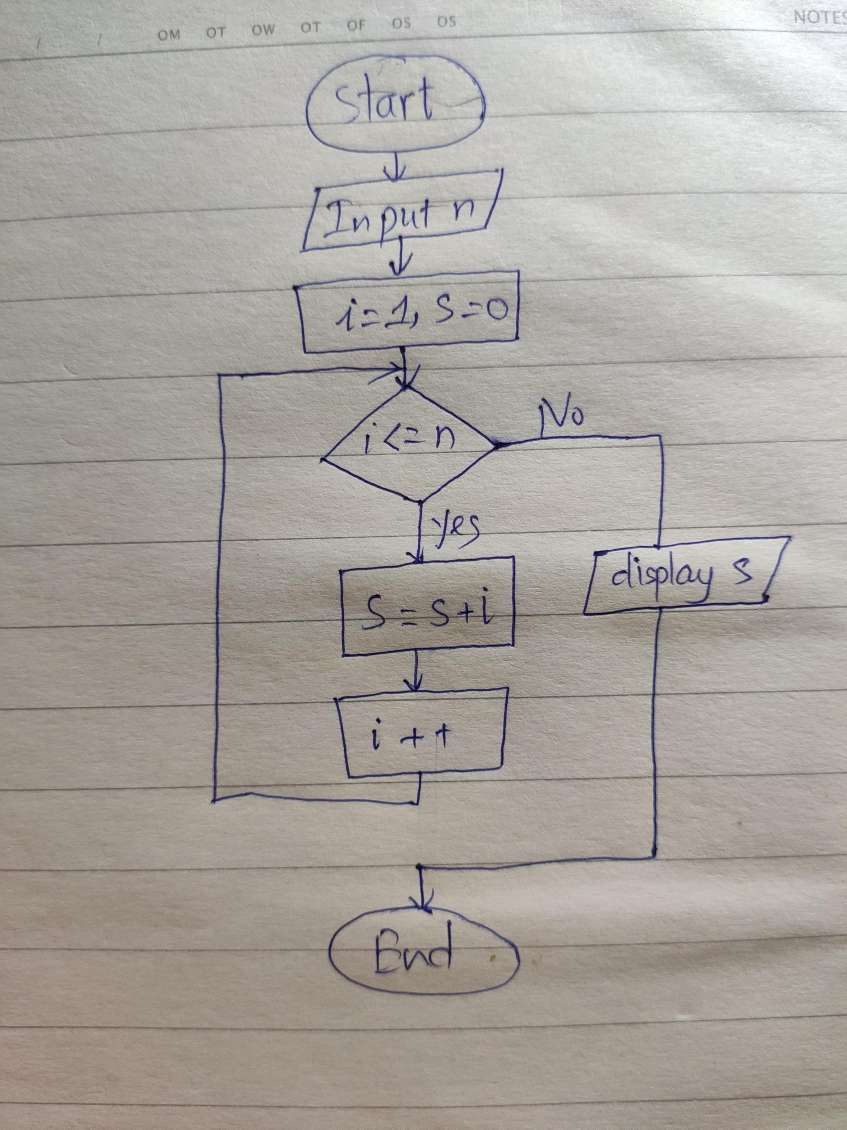 / / OM OT OW OT OF OS OS
NOTES
Start
Input n
i=1, S=0
i<=n
No
yes
display s
S=s+i
i++
End